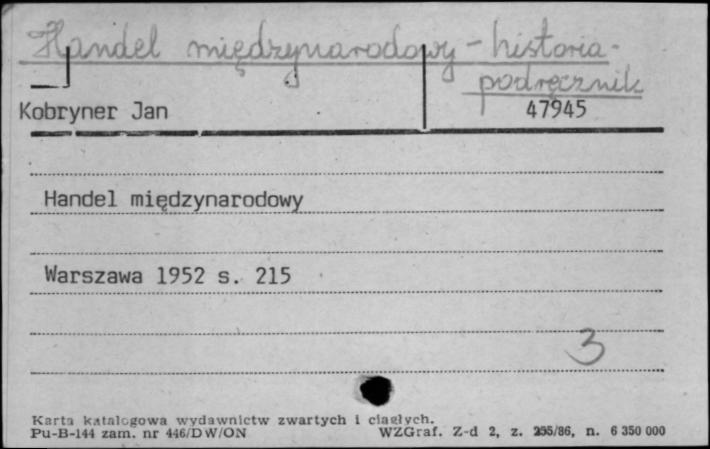 Handel międzynarodowy - historia -
podręcznik
Kobryner Jan 47945
Handel międzynarodowy
Warszawa 1952 s. 215
3
Karta katalogowa wydawnictw zwartych i ciągłych.
Pu-B-144 zam. nr 446/DW/ON WZGraf. Z-d 2, z. 255/86, n. 6 350 000